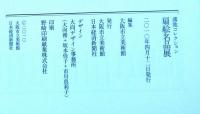 蔵出コレクション
扇絵名品展
二〇一〇年四月十三日発行
編集
大阪市立美術館
発行
大阪市立美術館
日本経済新聞社
デザイン
大向デザイン事務所
(大向務・坂本佳子・市川恵莉子)
印刷
野崎印刷紙業株式会社
©2010
大阪市立美術館
日本経済新聞社